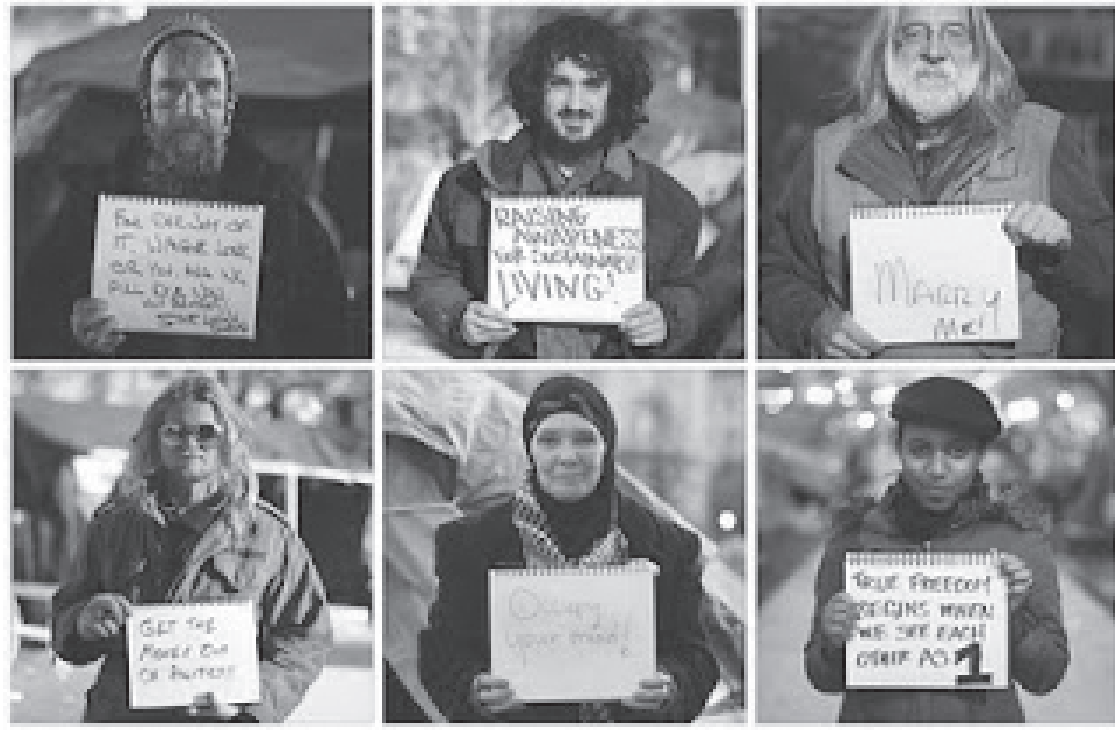 FOR THE JOY OF
IT. WAGE LOVE
OR YOU AND WE
ALL
RAISING
AWARENESS
FOR SUSTAINABLE
LIVING!
MARRY
ME!!
GET THE
MONEY OUT
OF POLITICS
Occupy
your mind!
TRUE FREEDOM
BEGINS WHEN
WE SEE EACH
OTHER AS 1